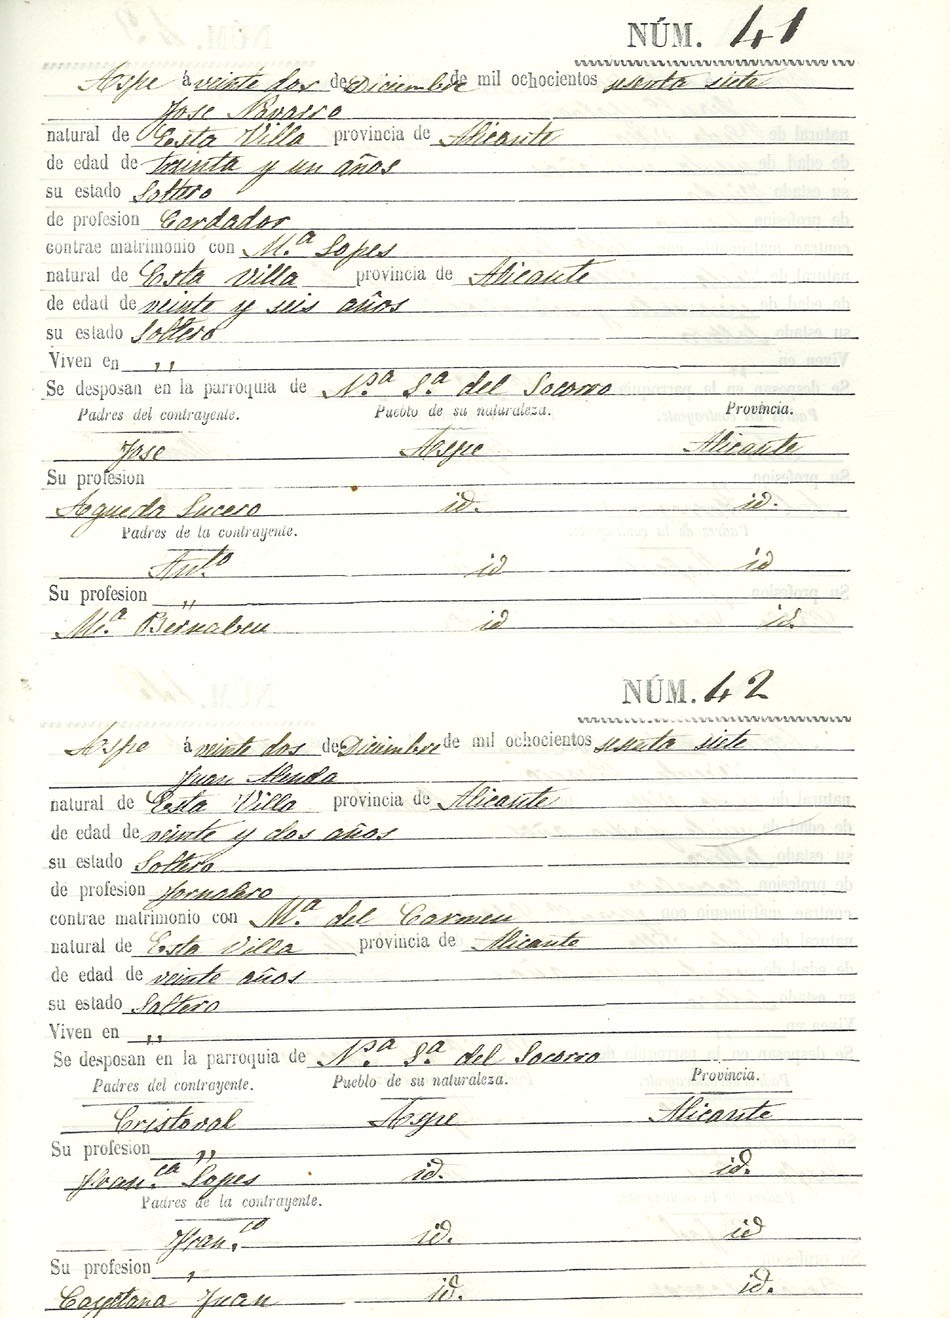 NÚM. 41
Aspe á veinte dos de Diciembre de mil ochocientos sesenta siete
Jose Navarro
natural de Esta Villa provincia de Alicante
de edad de treinta y un años
su estado Soltero
de profesion Cardador
contrae matrimonio con M.ª Lopes
natural de Esta Villa provincia de Alicante
de edad de veinte y seis años
su estado Soltero
Viven en ,,
Se desposan en la parroquia de N.ª S.ª del Socorro
Padres del contrayente. Pueblo de su naturaleza. Provincia.
Jose Aspe Alicante
Su profesion
Agueda Lucero id. id.
Padres de la contrayente.
Ant.º id id
Su profesion ,,
M.ª Bernabeu id id.
NÚM. 42
Aspe á veinte dos de Diciembre de mil ochocientos sesenta siete
Juan Alenda
natural de Esta Villa provincia de Alicante
de edad de veinte y dos años
su estado Soltero
de profesion Jornalero
contrae matrimonio con M.ª del Carmen
natural de Esta Villa provincia de Alicante
de edad de veinte años
su estado Soltero
Viven en ,,
Se desposan en la parroquia de N.ª S.ª del Socorro
Padres del contrayente. Pueblo de su naturaleza. Provincia.
Cristoval Aspe Alicante
Su profesion ,,
Fran.ca Lopes id. id.
Padres de la contrayente.
Fran.co id. id
Su profesion ,
Cayetana Juan id. id.